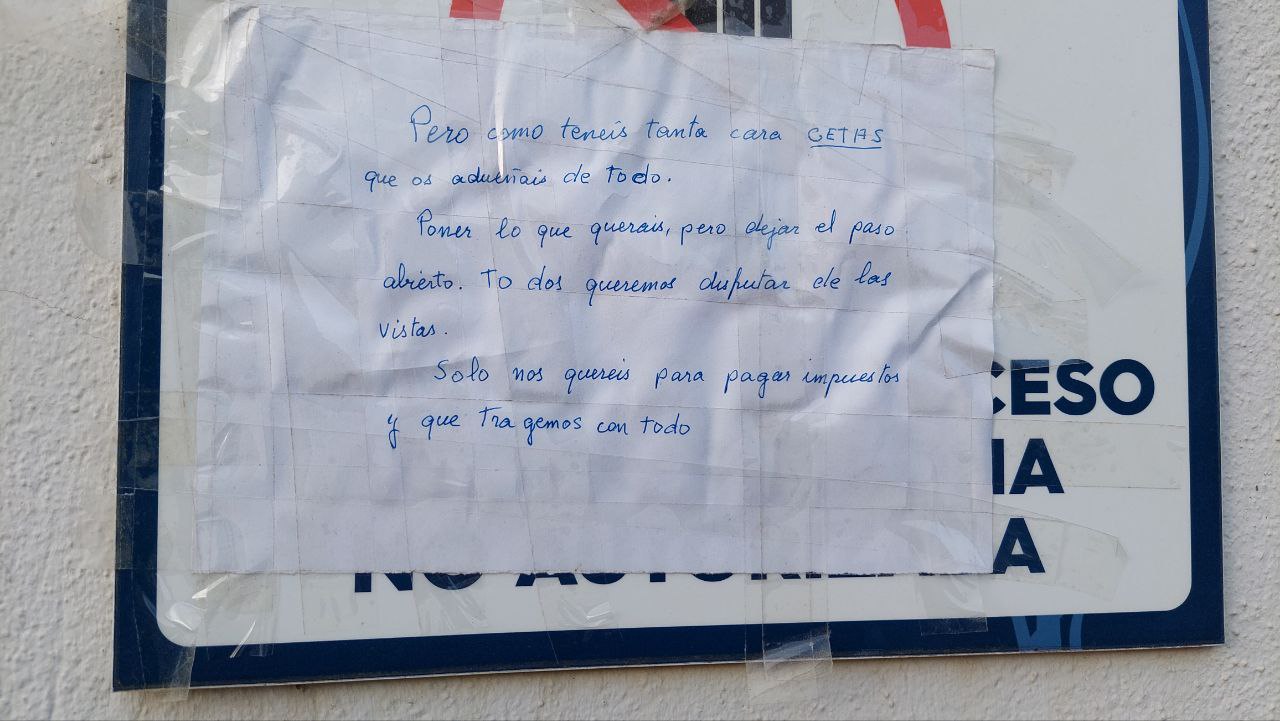 Pero como teneis tanta cara CETAS
que os adueñais de todo.
Poner lo que querais, pero dejar el paso
abierto. To dos queremos disfutar de las
vistas.
Solo nos quereis para pagar impuestos
y que tra gemos con todo
CESO
IA
NO A
A